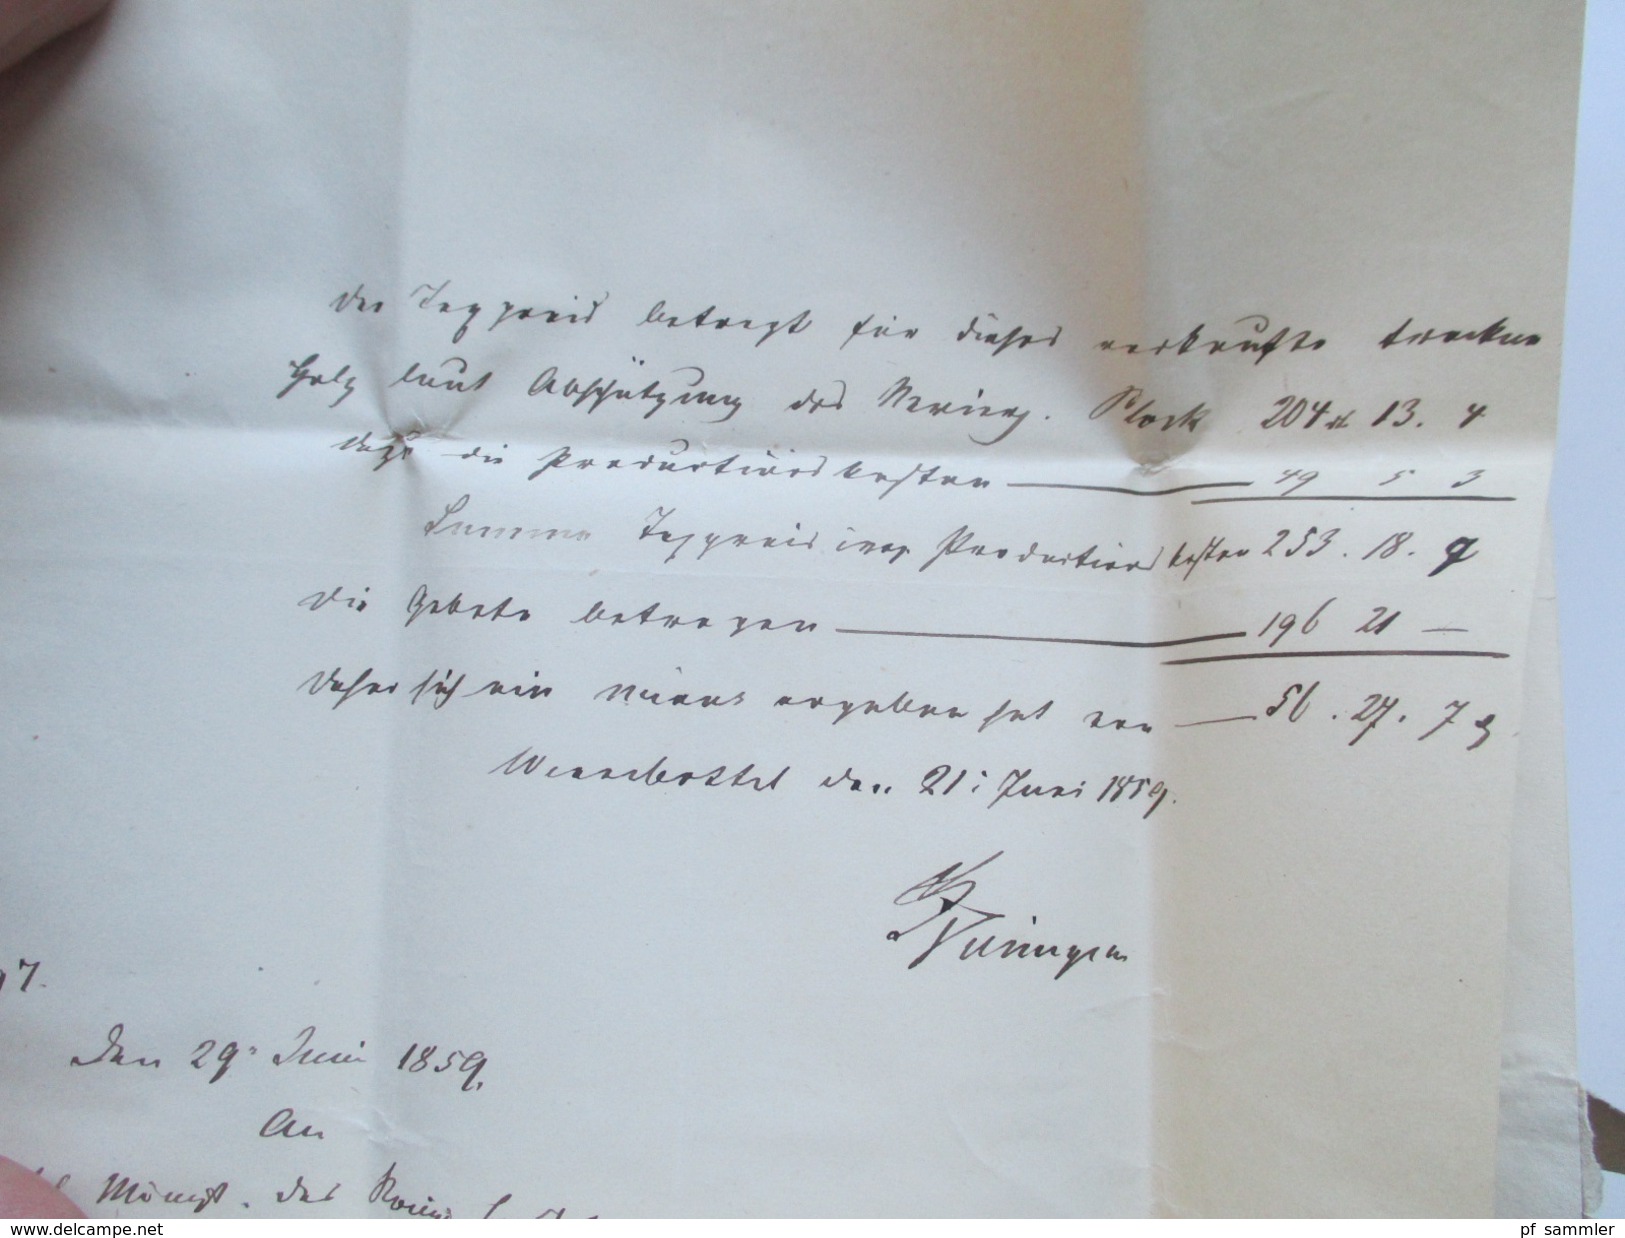 Der Taxpreis betragt für dieses verkaufte trockne
Holz laut Abschätzung des Block 204 rt 13. 4
dazu die Productionskosten 49 5 3
Summa Taxpreis Productionskosten 253. 18. 7
Die Gebote betragen 196 21 —
daher sich ein minus ergeben hat von 56. 27. 7
den 21: Juni 1859.
97.
Den 29 Juni 1859.
An
der
www.delcampe.net
pf_sammler